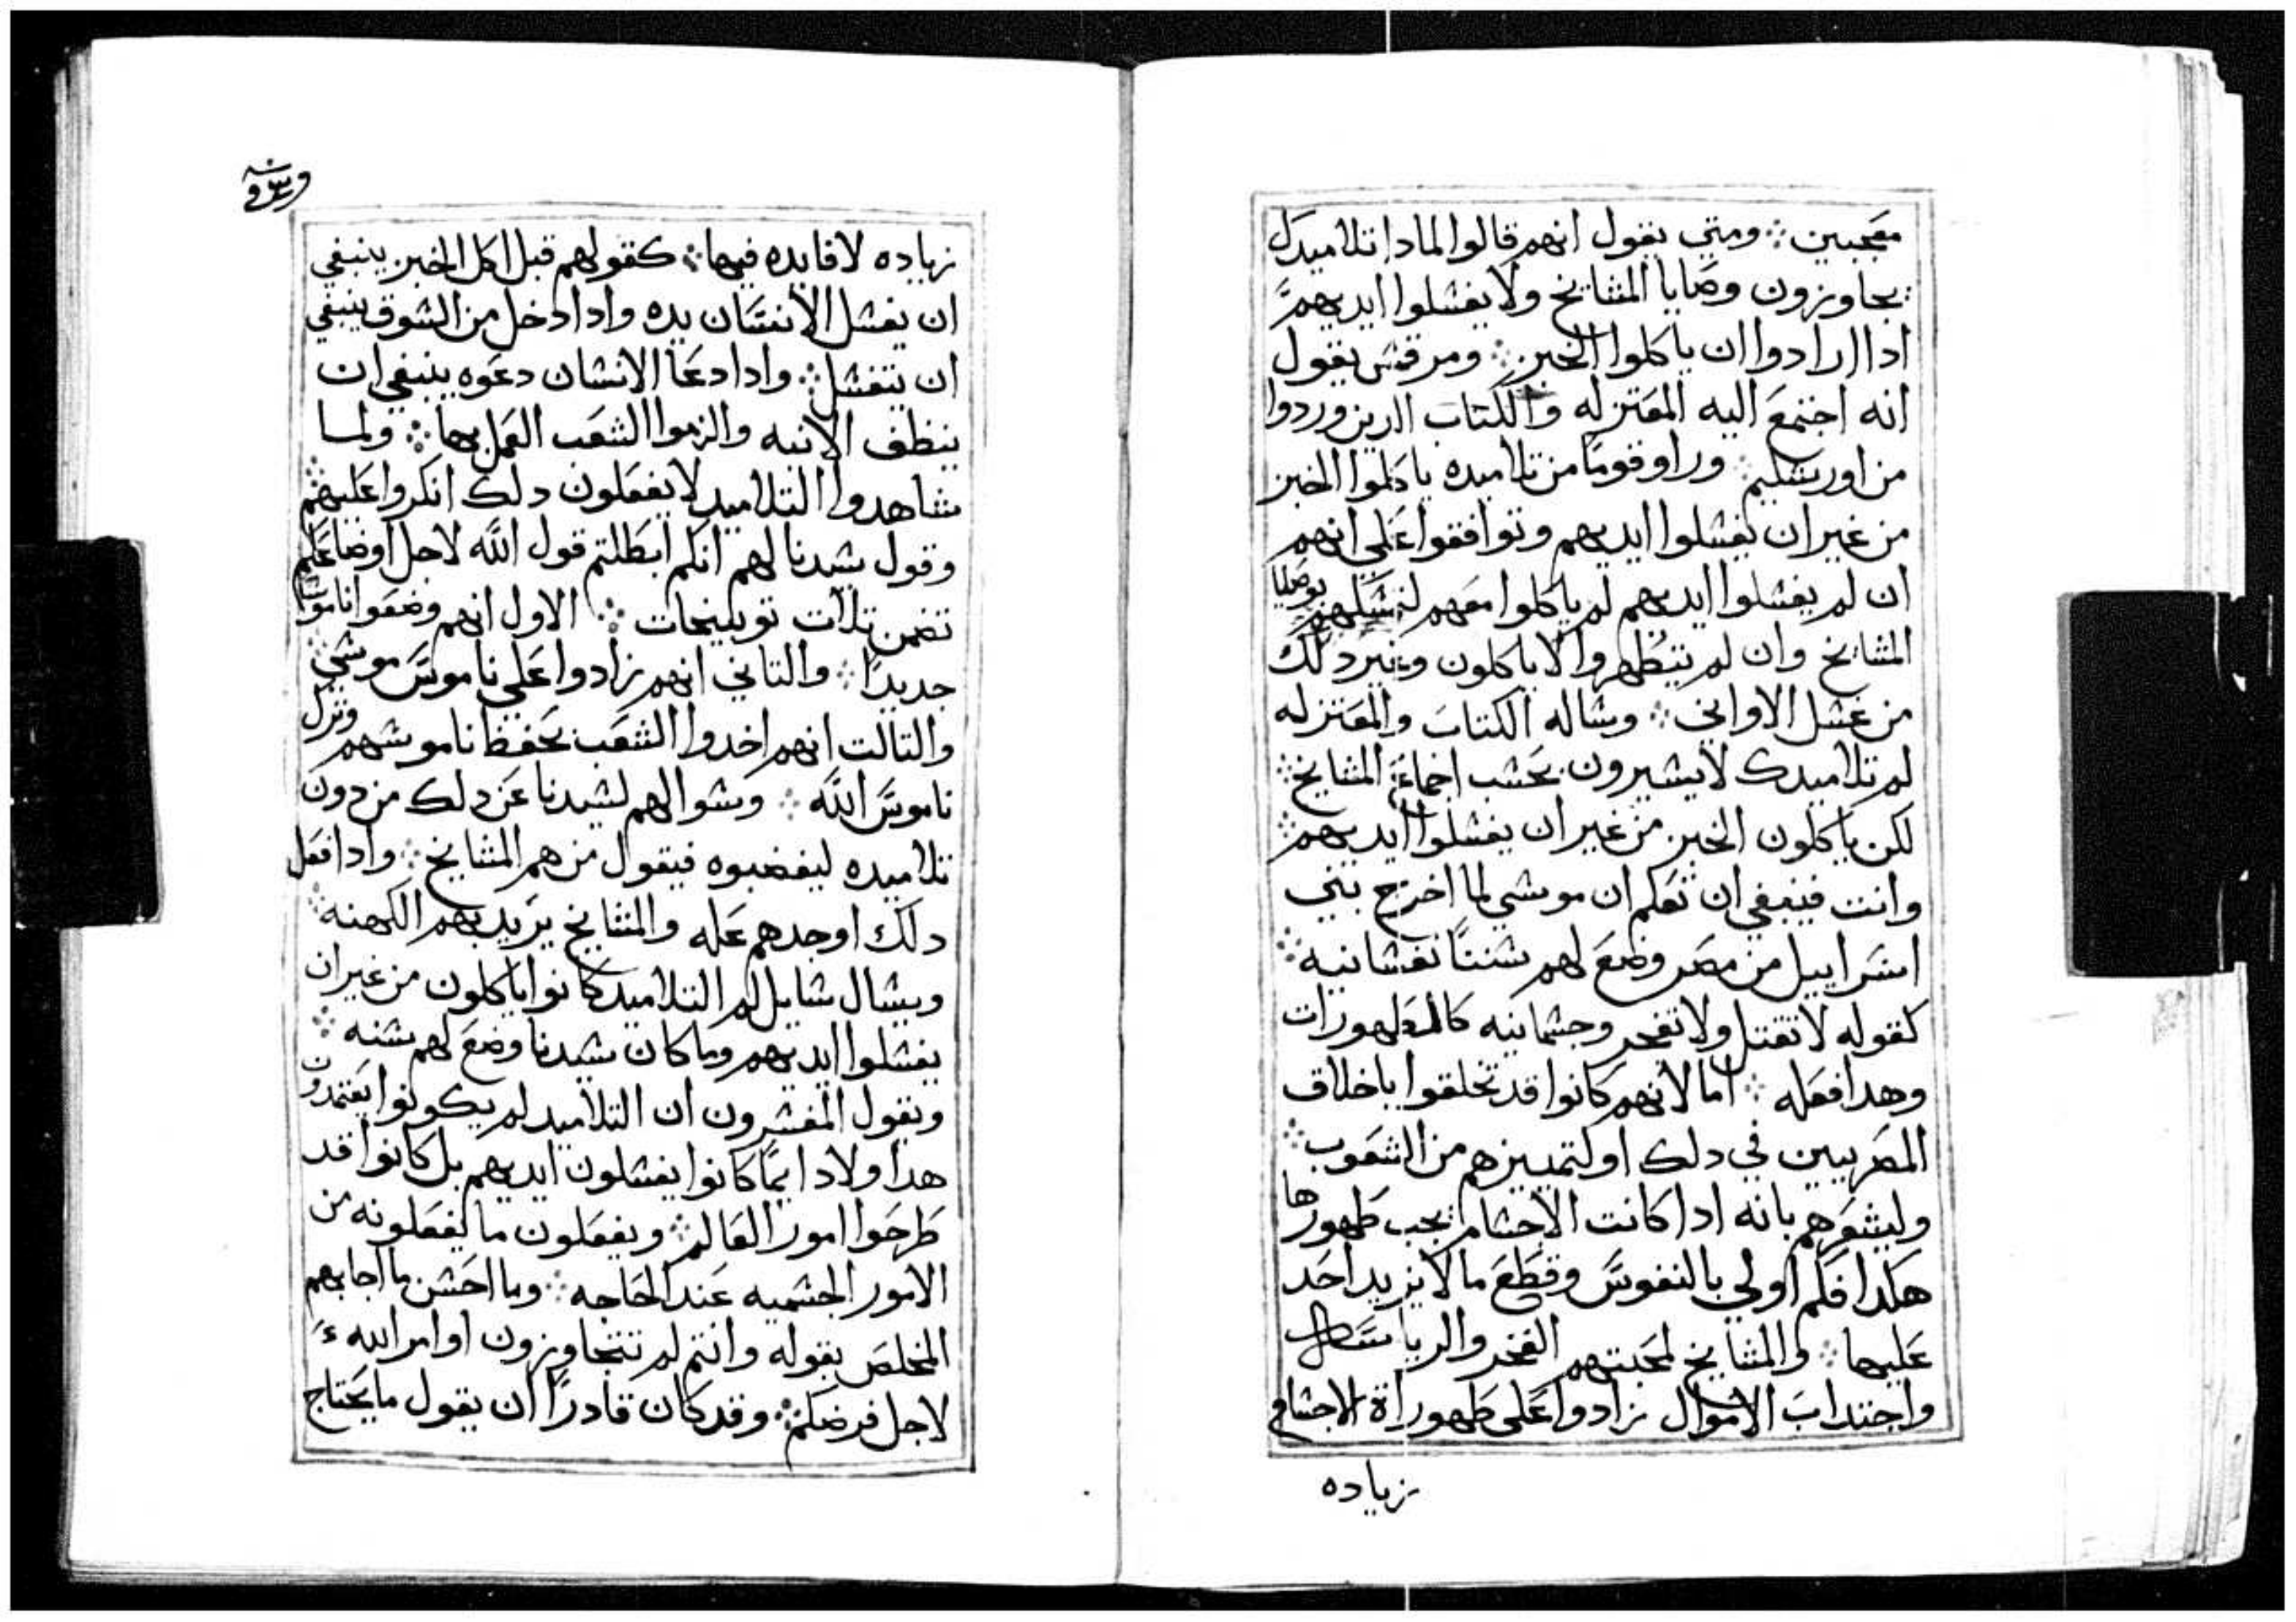 معجبين ჻ ومتي يقول انهم قالوا لمادا تلاميدك
يجاوزون وصايا المشايخ ولا يغسلوا ايديهم
ادا ارادوا ان ياكلوا الخبز ჻ ومرقس يقول
انه اجتمع اليه المعتزله والكتاب الدين وردوا
من اورشليم ჻ وراو قومًا من تلاميده ياكلوا الخبز
من غير ان يغسلوا ايديهم وتوافقوا علي انهم
ان لم يغسلوا ايديهم لم ياكلوا معهم لتمسكهم بوصايا
المشايخ وان لم يتطهروا لا ياكلون وغير دلك
من غسل الاواني ჻ وساله الكتاب والمعتزله
لم تلاميدك لا يسيرون بحسب اجماع المشايخ ჻
لكن ياكلون الخبز من غير ان يغسلوا ايديهم ჻
وانت فينبغي ان تعلم ان موسي لما اخرج بني
اسراييل من مصر وضع لهم سننًا نفسانيه ჻
كقوله لا تقتل ولا تفجر وجسمانيه كالطهورات
وهدا فعله ჻ اما لانهم كانوا قد تخلقوا باخلاق
المصريين في دلك او لتمييزهم من الشعوب ჻
وليشعرهم بانه ادا كانت الاجسام يجب طهورها
هكدا فكم اولي بالنفوس وقطع ما لا يزيد احد
عليها ჻ والمشايخ لمحبتهم الفخر والريا
واجتداب الاموال زادوا علي طهوراة الاجسام
زياده
زياده لا فايده فيها ჻ كقولهم قبل اكل الخبز ينبغي
ان يغسل الانسان يده وادا دخل من السوق ينبغي
ان يتغسل ჻ وادا دعا الانسان دعوه ينبغي ان
ينظف الانيه والزموا الشعب العمل بها ჻ ولما
شاهدوا التلاميد لا يفعلون دلك انكروا عليهم ჻
وقول سيدنا لهم انكم ابطلتم قول الله لاجل اوضاعكم
تضمن تلات توبيخات ჻ الاول انهم وضعوا ناموسًا
جديدًا ჻ والتاني انهم زادوا علي ناموس موسي ჻
والتالت انهم اخدوا الشعب بحفظ ناموسهم وترك
ناموس الله ჻ وسوالهم لسيدنا عن دلك من دون
تلاميده ليغضبوه فيقول من هم المشايخ ჻ وادا فعل
دلك اوجدهم عله والمشايخ يريد بهم الكهنه ჻
ويسال سايل لم التلاميد كانوا ياكلون من غير ان
يغسلوا ايديهم وما كان سيدنا وضع لهم سنه ჻
ويقول المفسرون ان التلاميد لم يكونوا يعتمدون
هدا ولا دايمًا كانوا يغسلون ايديهم بل كانوا قد
طرحوا امور العالم ჻ ويفعلون ما يفعلونه من
الامور الجسميه عند الحاجه ჻ وما احسن ما اجابهم
المخلص بقوله وانتم لم تتجاوزون اوامر الله
لاجل فرضكم ჻ وقد كان قادرًا ان يقول ما يحتاج